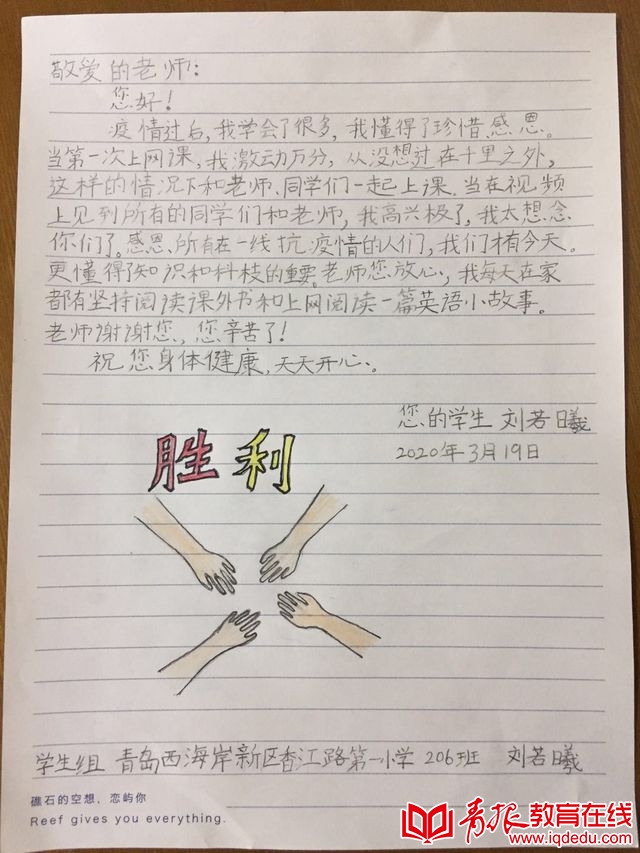 敬爱的老师：
您好！
疫情过后，我学会了很多，我懂得了珍惜、感恩。
当第一次上网课，我激动万分，从没想过在千里之外，
这样的情况下和老师、同学们一起上课。当在视频
上见到所有的同学们和老师，我高兴极了，我太想念
你们了。感恩、所有在一线抗疫情的人们，我们才有今天。
更懂得了知识和科技的重要。老师您放心，我每天在家
都有坚持阅读课外书和上网阅读一篇英语小故事。
老师谢谢您，您辛苦了！
祝您身体健康，天天开心。
您的学生 刘若曦
2020年3月19日
胜利
学生组 青岛西海岸新区香江路第一小学 206班 刘若曦
礁石的空想、恋屿你
Reef gives you everything.
青报教育在线
www.iqdedu.com